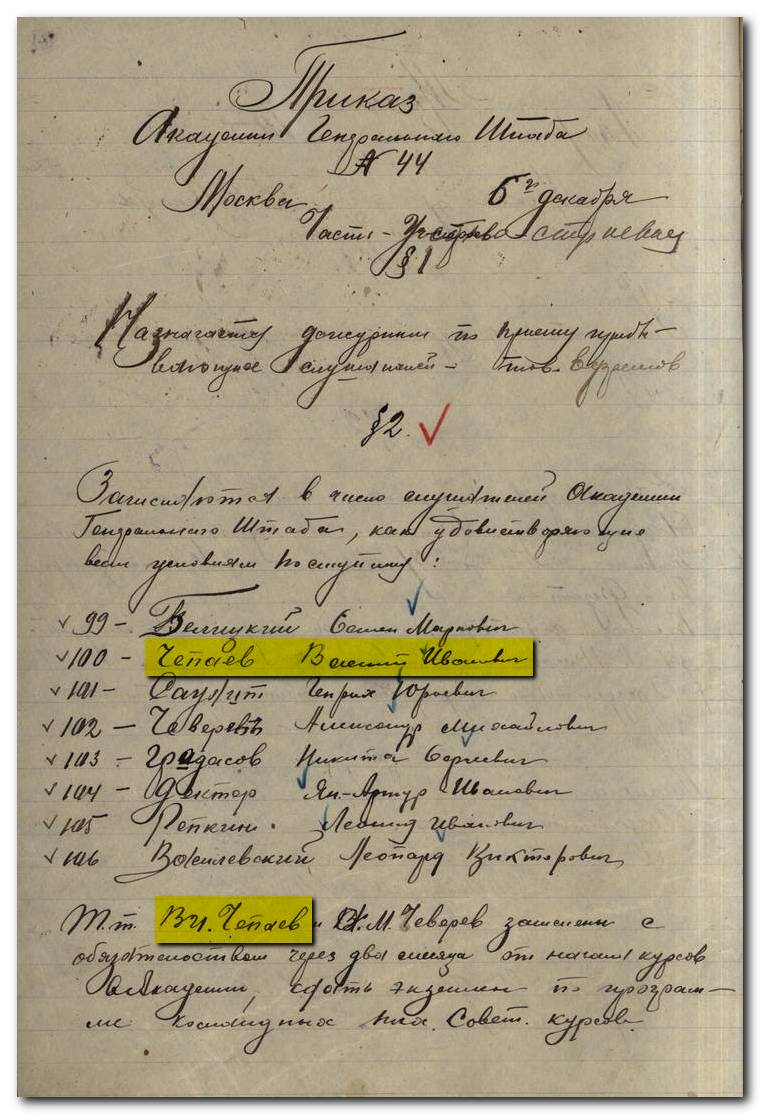 Приказ
Академии Генерального Штаба
№ 44
Москва 6го декабря
Часть
§ 1
Назначается дежурным по приему прибы-
вающих слушателей - тов.
§ 2.
Записываются в число слушателей Академии
Генерального Штаба, как удовлетворяющие
всем условиям поступ.:
99 - Белицкий Семен Маркович
100 - Чепаев Василий Иванович
101 - Саулит Генрих Юрьевич
102 - Чеверев Александр Михайлович
103 - Градасов Никита Сергеевич
104 - Дектер Ян-Артур Иванович
105 Репкин. Леонид Иванович
106 Василевский Леопард Викторович
Т.т. В.И. Чепаев и А.М. Чеверев зачислены с
обязательством через два месяца от начала курсов
в Академии, сдать экзамен по програм-
ме командных Совет. курсов.